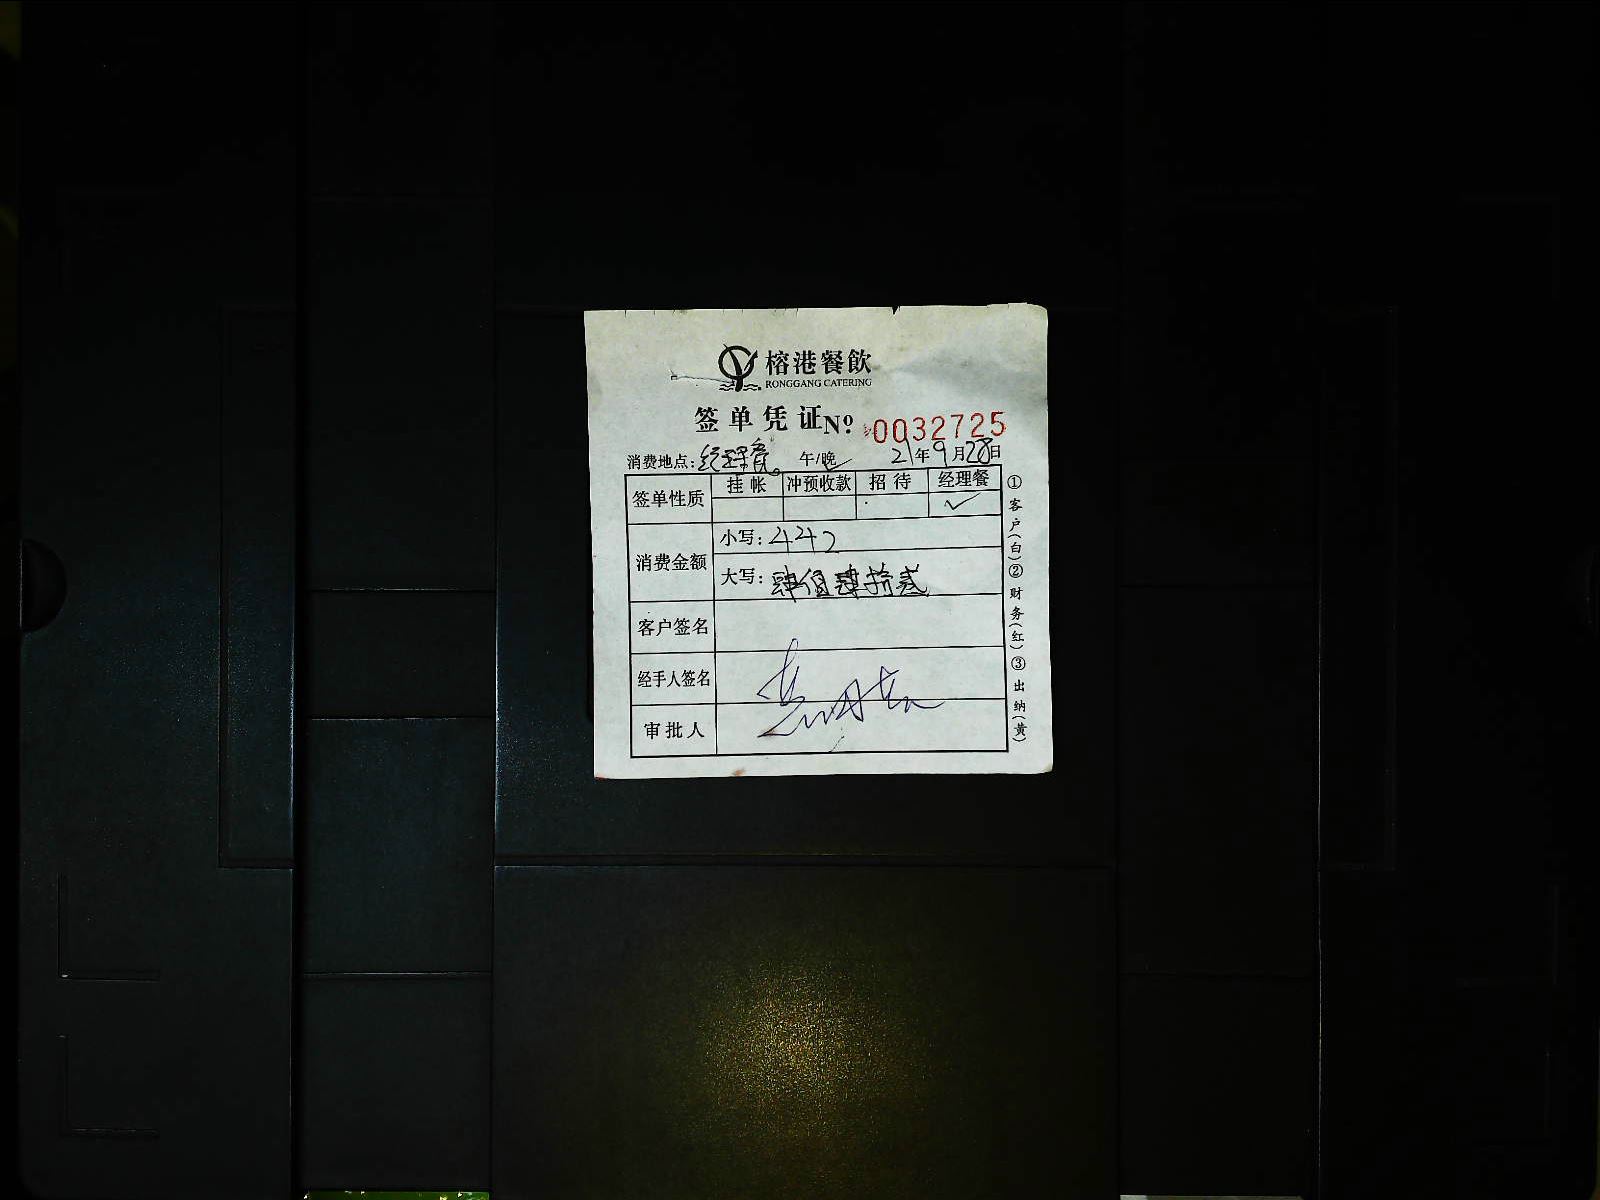 榕港餐飲
RONGGANG CATERING
签单凭证№ 0032725
消费地点:经理餐。 午/晚✓ 21年9月28日
签单性质 挂帐 冲预收款 招待 经理餐
✓
消费金额 小写:442
大写:肆佰肆拾贰
客户签名
经手人签名
审批人
①客户(白)②财务(红)③出纳(黄)